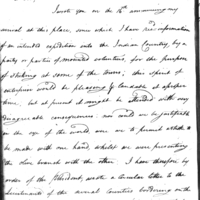 I wrote you on the 16th announcing my
arrival at this place, since which I have rec'd information
of an intended expedition into the Indian Country, by a
party or parties of mounted volunteers, for the purpose
of striking at some of the towns; this spirit of
enterprise would be pleasing & laudable at another
time, but at present it might be attended with very
disagreeable consequences nor could we be justifiable
in the eye of the world were we to permit
be made with one hand, whilst we were presenting
the olive branch with the other. I have therefore by
order of the President, wrote a Circular letter to the
Lieutenants of the several Counties bordering on the